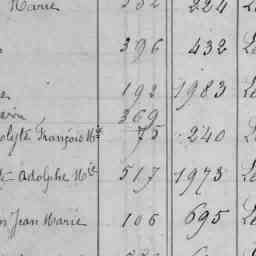 Marie 332 224
396 432 Le
192 1983 Le
369
olyte François Mie 75 240 Le
Adolphe Mie 517 1973 Le
Jean Marie 106 695 Le